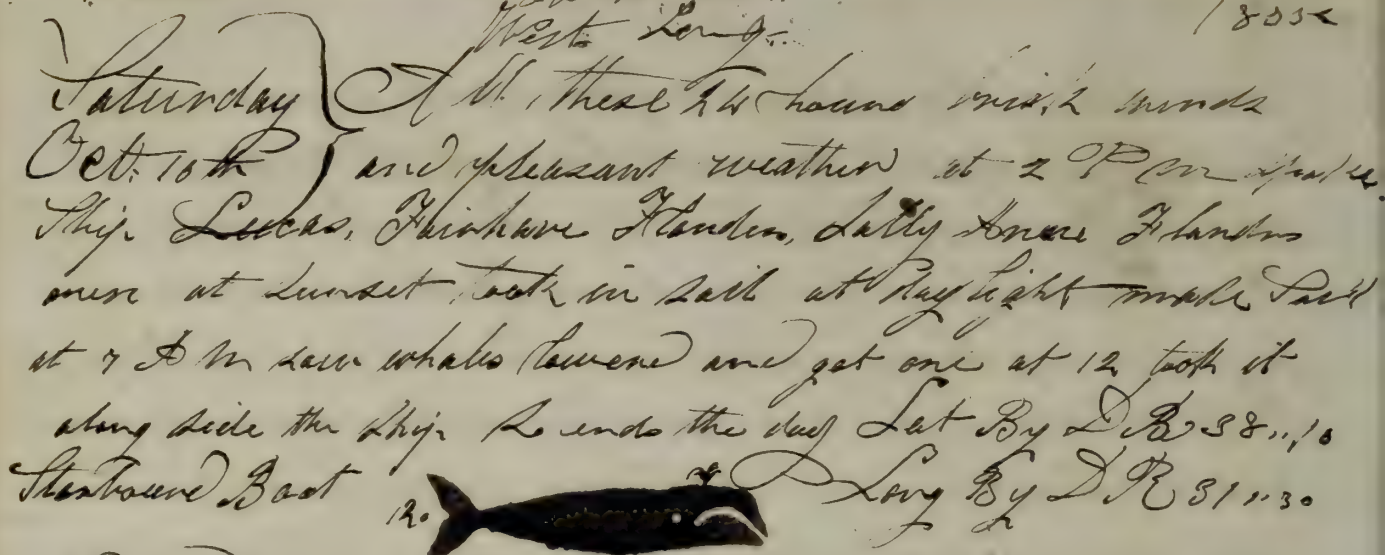 West Long.
Saturday All these 24 hours brisk winds
Oct. 10th and pleasant weather at 2 P m
Ship Lucas, Fairhave Flanders, Sally Anne Flanders
at sunset took in sail at day light make Sail
at 7 A M saw whales lowered and got one at 12 took it
along side the ship So ends the day Lat By D R 38,,10
Starbourd Boat Long By D R 31,,30
12.